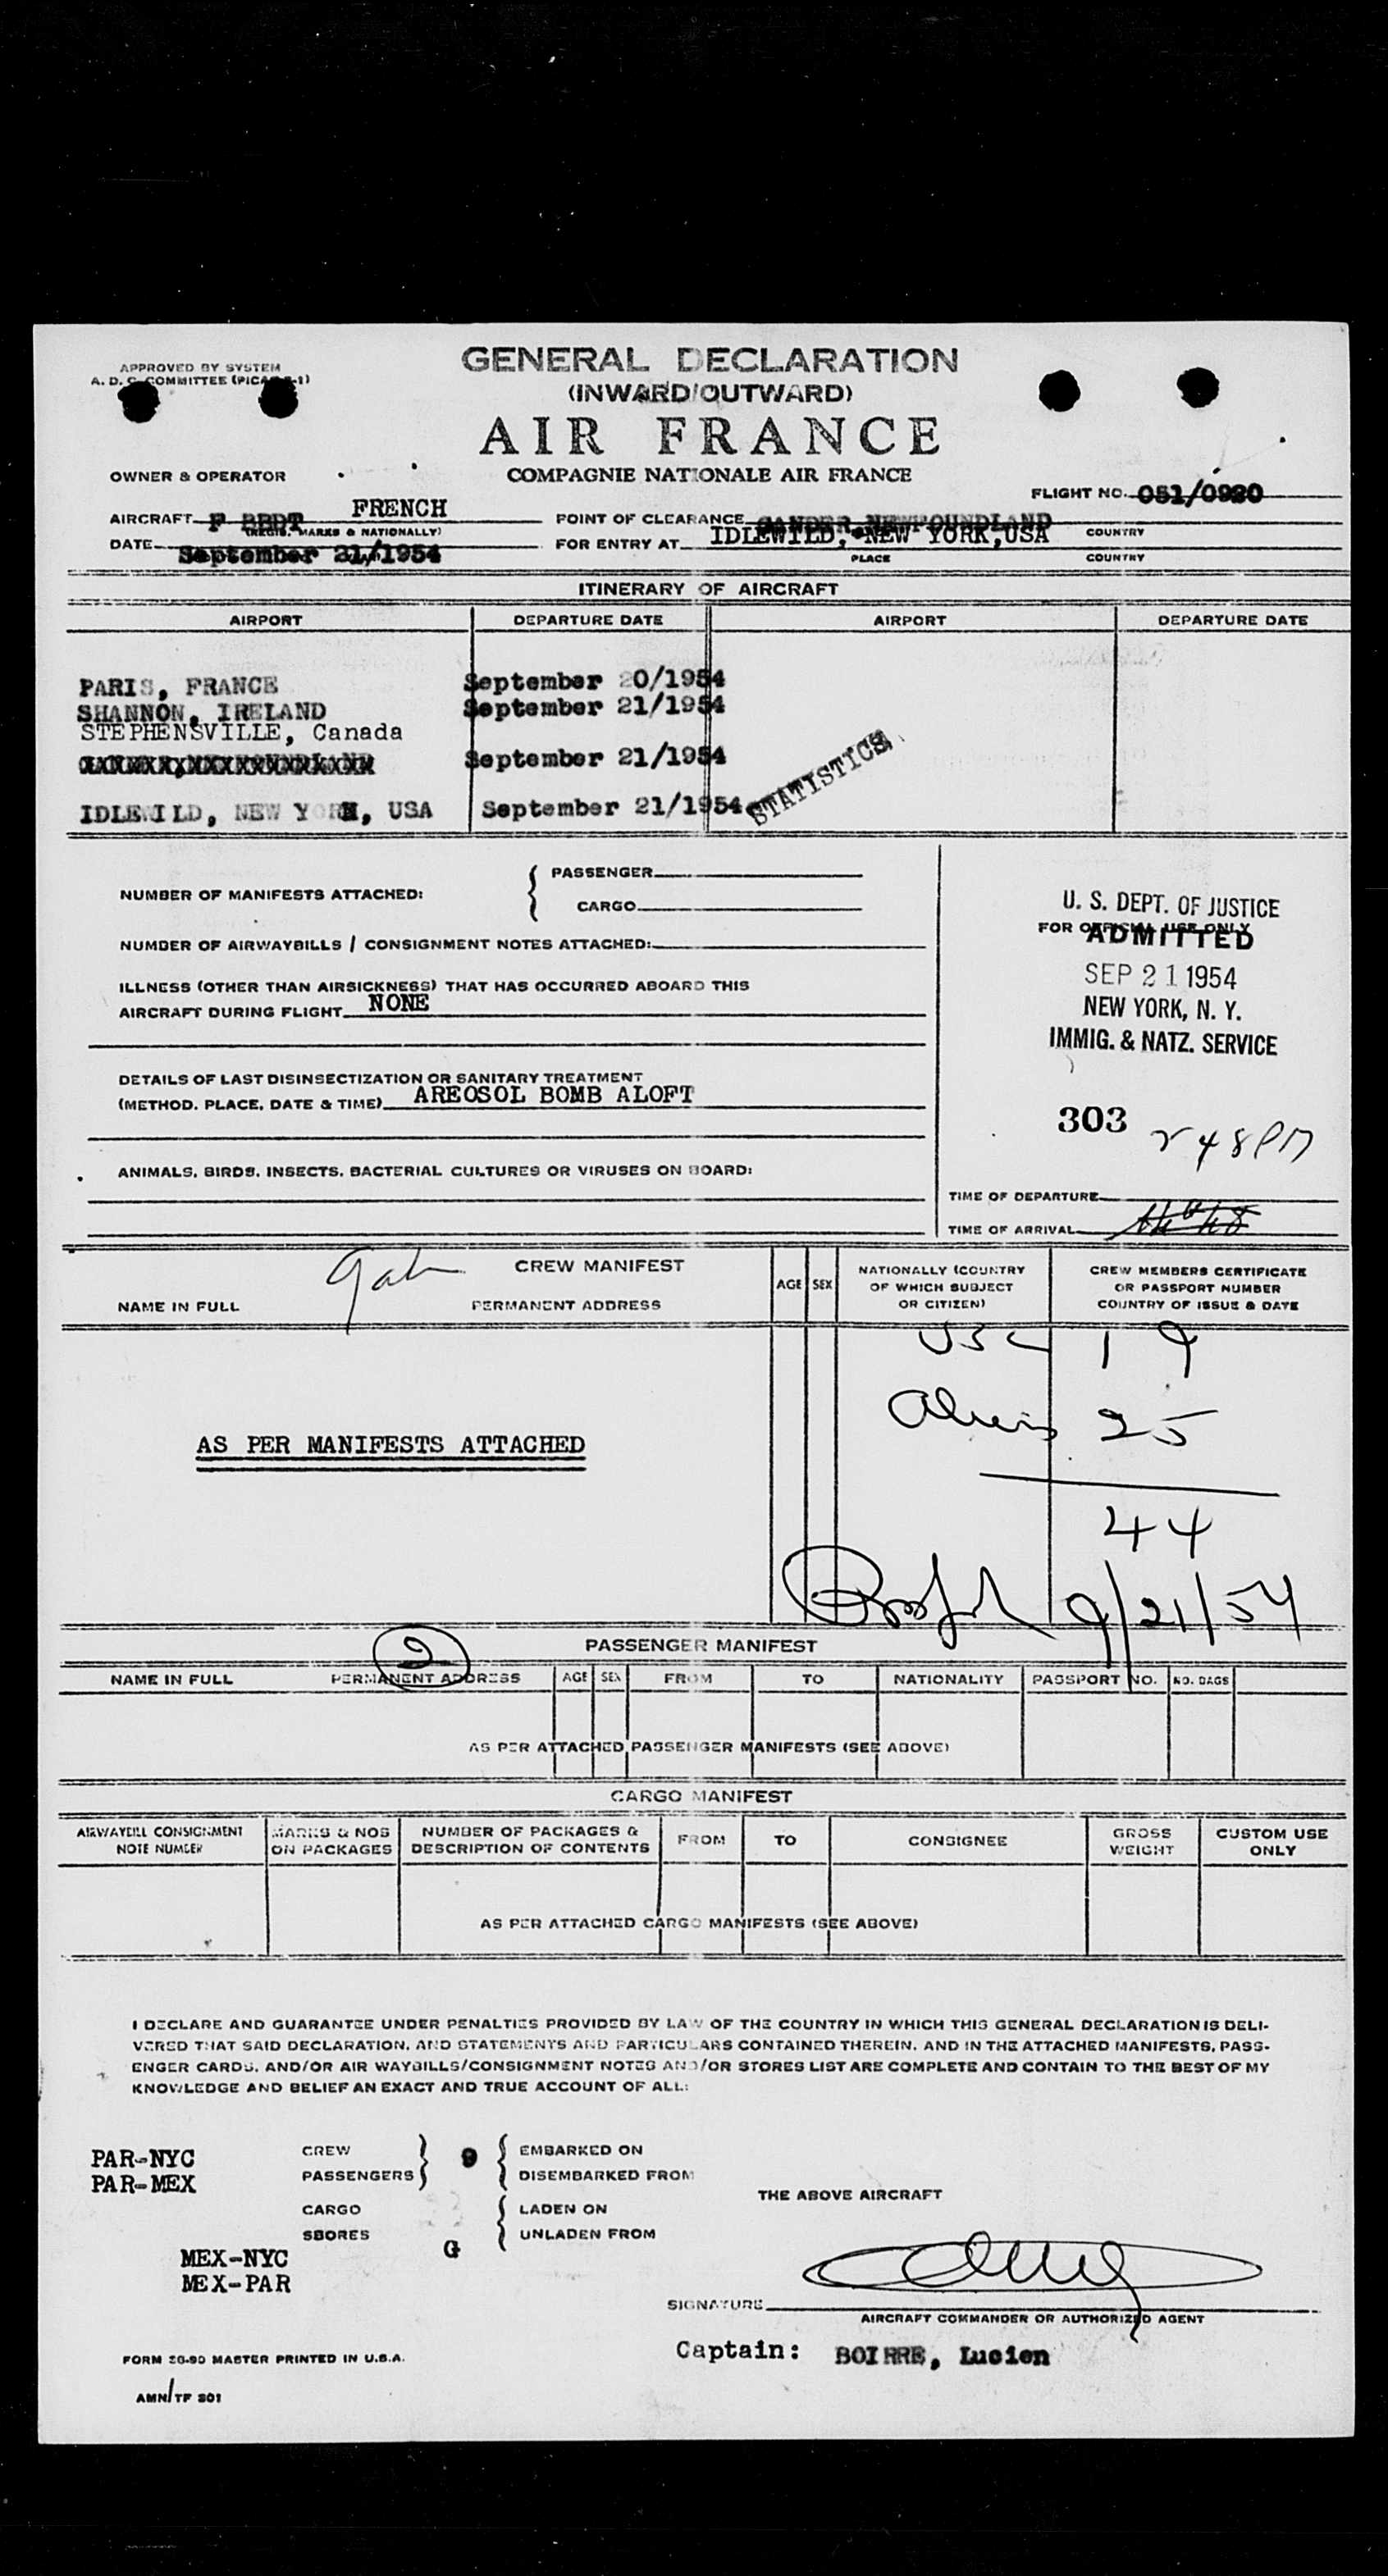 APPROVED BY SYSTEM
A. D. C. COMMITTEE
GENERAL DECLARATION
(INWARD/OUTWARD)
AIR FRANCE
COMPAGNIE NATIONALE AIR FRANCE
OWNER & OPERATOR
FLIGHT NO. 051/0920
AIRCRAFT F BBDT FRENCH
(REGIS. MARKS & NATIONALLY)
POINT OF CLEARANCE GANDER, NEWFOUNDLAND
COUNTRY
DATE September 21/1954
FOR ENTRY AT IDLEWILD, NEW YORK,USA
PLACE
COUNTRY
ITINERARY OF AIRCRAFT
AIRPORT DEPARTURE DATE AIRPORT DEPARTURE DATE
PARIS, FRANCE September 20/1954
SHANNON, IRELAND September 21/1954
STEPHENSVILLE, Canada
September 21/1954
IDLEWILD, NEW YORK, USA September 21/1954
STATISTICS
NUMBER OF MANIFESTS ATTACHED:
PASSENGER
CARGO
NUMBER OF AIRWAYBILLS / CONSIGNMENT NOTES ATTACHED:
ILLNESS (OTHER THAN AIRSICKNESS) THAT HAS OCCURRED ABOARD THIS
AIRCRAFT DURING FLIGHT NONE
DETAILS OF LAST DISINSECTIZATION OR SANITARY TREATMENT
(METHOD. PLACE. DATE & TIME) AREOSOL BOMB ALOFT
ANIMALS. BIRDS. INSECTS. BACTERIAL CULTURES OR VIRUSES ON BOARD:
U. S. DEPT. OF JUSTICE
FOR OFFICIAL USE ONLY
ADMITTED
SEP 21 1954
NEW YORK, N. Y.
IMMIG. & NATZ. SERVICE
303
248 PM
TIME OF DEPARTURE
TIME OF ARRIVAL
CREW MANIFEST
NAME IN FULL
PERMANENT ADDRESS
AGE
SEX
NATIONALLY (COUNTRY
OF WHICH SUBJECT
OR CITIZEN)
CREW MEMBERS CERTIFICATE
OR PASSPORT NUMBER
COUNTRY OF ISSUE & DATE
USC 19
Aliens 25
44
AS PER MANIFESTS ATTACHED
9/21/54
PASSENGER MANIFEST
2
NAME IN FULL PERMANENT ADDRESS AGE SEX FROM TO NATIONALITY PASSPORT NO. NO. BAGS
AS PER ATTACHED PASSENGER MANIFESTS (SEE ABOVE)
CARGO MANIFEST
AIRWAYBILL CONSIGNMENT
NOTE NUMBER
MARKS & NOS
ON PACKAGES
NUMBER OF PACKAGES &
DESCRIPTION OF CONTENTS
FROM
TO
CONSIGNEE
GROSS
WEIGHT
CUSTOM USE
ONLY
AS PER ATTACHED CARGO MANIFESTS (SEE ABOVE)
I DECLARE AND GUARANTEE UNDER PENALTIES PROVIDED BY LAW OF THE COUNTRY IN WHICH THIS GENERAL DECLARATION IS DELI-
VERED THAT SAID DECLARATION, AND STATEMENTS AND PARTICULARS CONTAINED THEREIN. AND IN THE ATTACHED MANIFESTS, PASS-
ENGER CARDS. AND/OR AIR WAYBILLS/CONSIGNMENT NOTES AND/OR STORES LIST ARE COMPLETE AND CONTAIN TO THE BEST OF MY
KNOWLEDGE AND BELIEF AN EXACT AND TRUE ACCOUNT OF ALL:
PAR-NYC
PAR-MEX
CREW
PASSENGERS
9
EMBARKED ON
DISEMBARKED FROM
THE ABOVE AIRCRAFT
CARGO
SBORES
G
LADEN ON
UNLADEN FROM
MEX-NYC
MEX-PAR
SIGNATURE
AIRCRAFT COMMANDER OR AUTHORIZED AGENT
Captain: BOIRRE, Lucien
FORM 20-90 MASTER PRINTED IN U.S.A.
AMN/TF 201